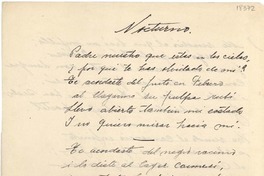 18372
Nocturno.
Padre nuestro que estás en los cielos,
¿por qué te has olvidado de mí?
Te acordaste del fruto en Febrero
al llagarse su pulpa rubí
llevo abierto también mi costado
I no quiero mirar hacia mí.
Te acordaste del negro racimo
i lo diste al lagar carmesí